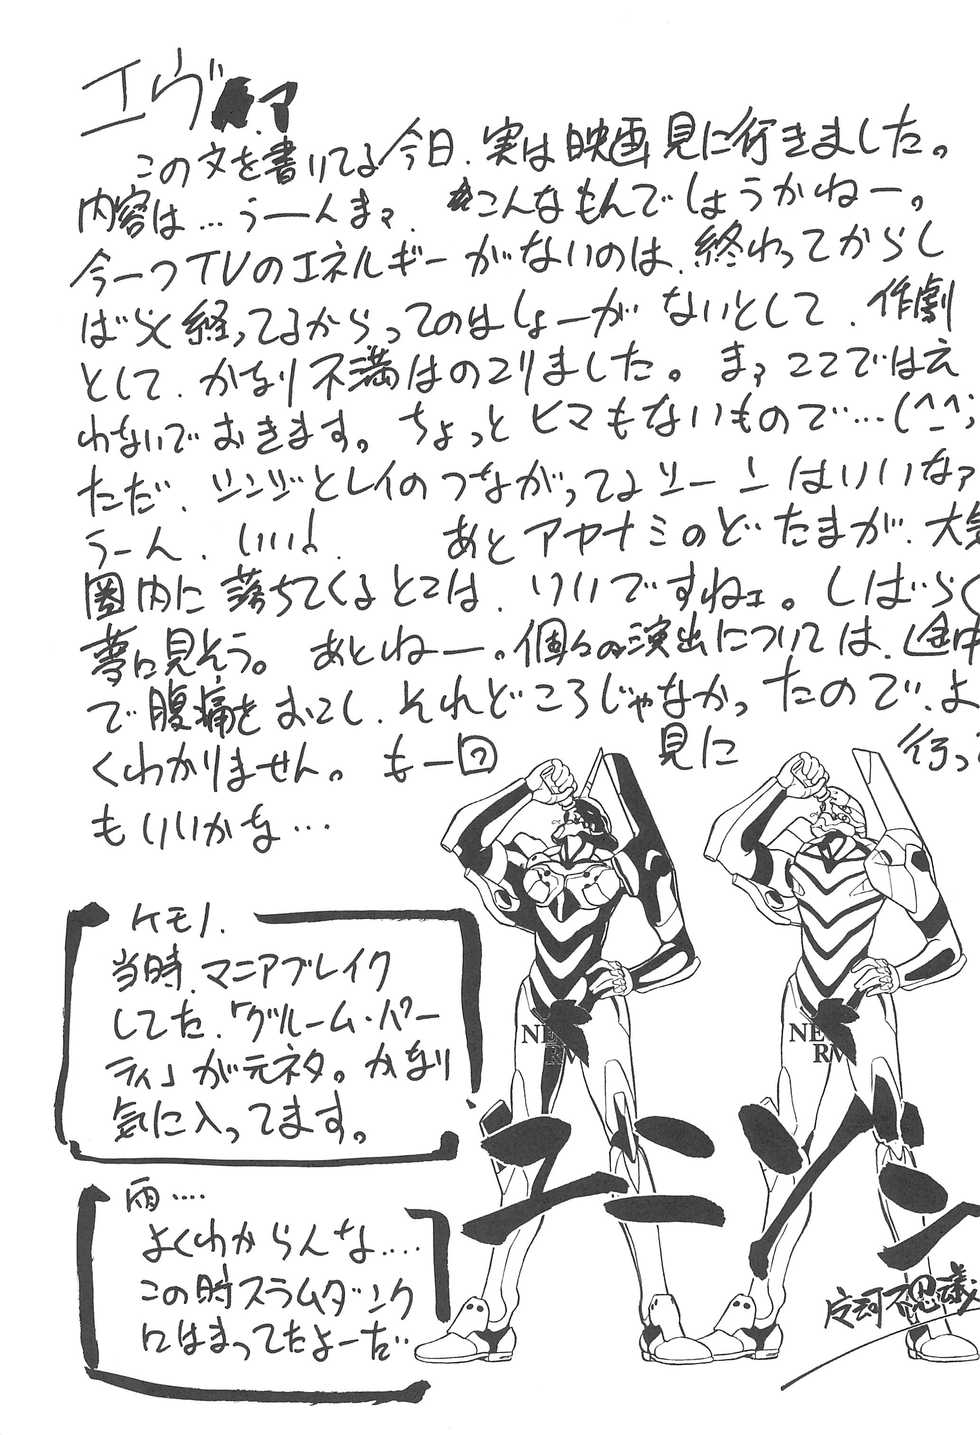 エヴァ
この文を書いてる今日、実は映画見に行きました。
内容は…うーんまァ、こんなもんでしょうかねー。
今一つTVのエネルギーがないのは、終わってからし
ばらく経ってるからってのはしょーがないとして、作劇
として、かなり不満はのこりました。まァここではえ
わないでおきます。ちょっとヒマもないもので…(^^;
ただ、シンジとレイのつながってるシーンはいいなァ
うーん、いいよ、あとアヤナミのどたまが、大気
圏内に落ちてくるとこは、いいですねェ。しばらく
夢に見そう。あとねー。個々の演出については、途中
で腹痛をおこし、それどころじゃなかったので、よ
くわかりません。も一回見に行っ
もいいかな…
ケモノ.
当時、マニアブレイク
してた、「グルーム・パー
ティ」が元ネタ。かなり
気に入ってます。
雨….
よくわからんな….
この時スラムダンク
にはまってたよーだ…
NE
RV
NE
RV
エンジン